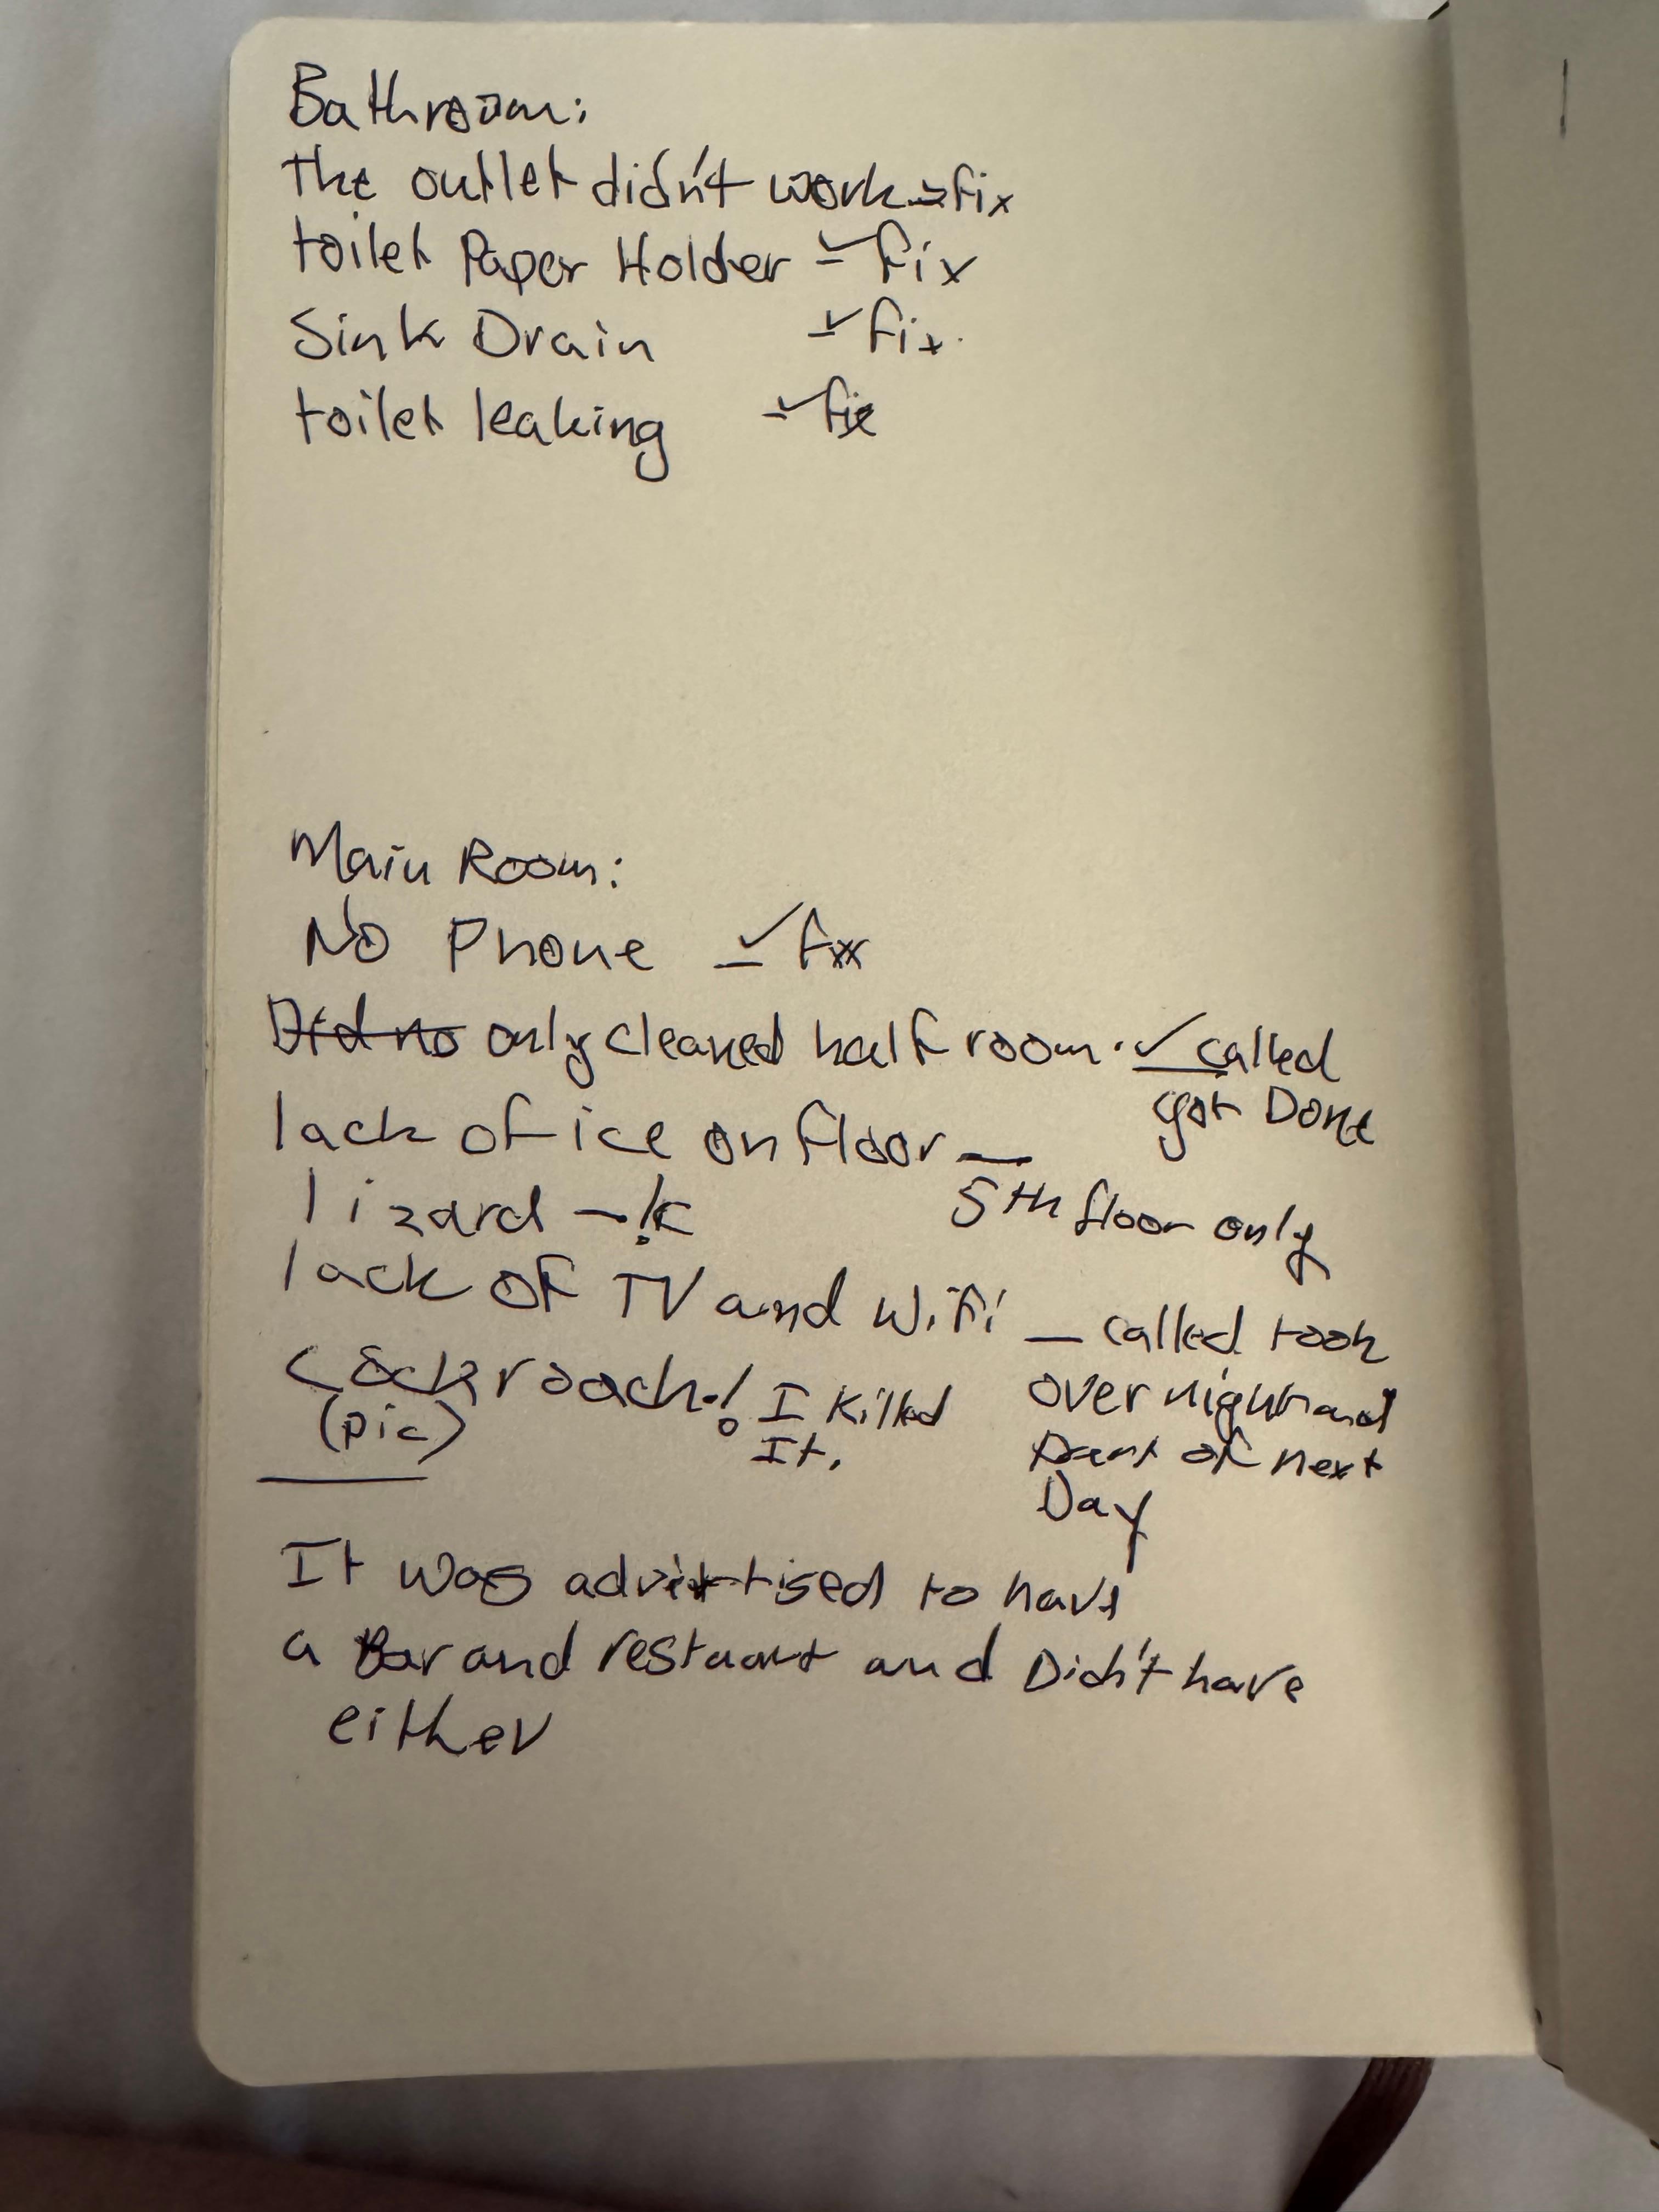 Bathroom:
The outlet didn't work - fix
toilet Paper Holder -✓ fix
Sink Drain -✓ fix.
toilet leaking -✓ fix
Main Room:
No Phone -✓ fix
Did no only cleaned half room. ✓ called
got Done
lack of ice on floor —
5th floor only
lizard - !
lack of TV and WiFi — called took
over night and
part of next
Day
Cockroach! I killed
It.
(pic)
It was advirtised to have
a Bar and restuant and Didn't have
either